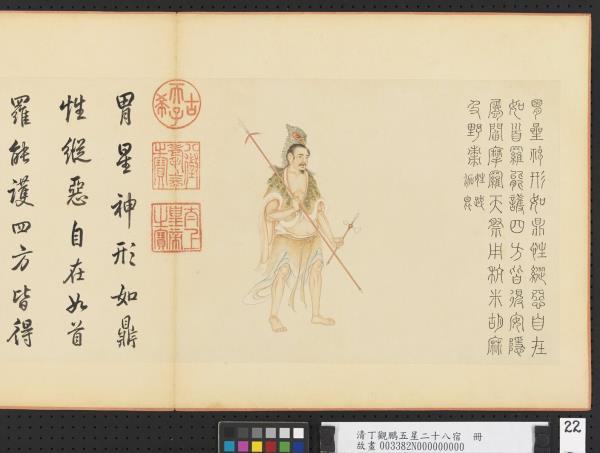 胃星神形如鼎性縱惡自在
如首羅能護四方皆得安隱
屬閻摩羅天祭用粳米胡麻
及野棗
古希天子
八徵耄念之寶
太上皇帝之寶
胃星神形如鼎
性縱惡自在如首
羅能護四方皆得
清丁觀鵬五星二十八宿 冊
故畫 003382N000000000
22